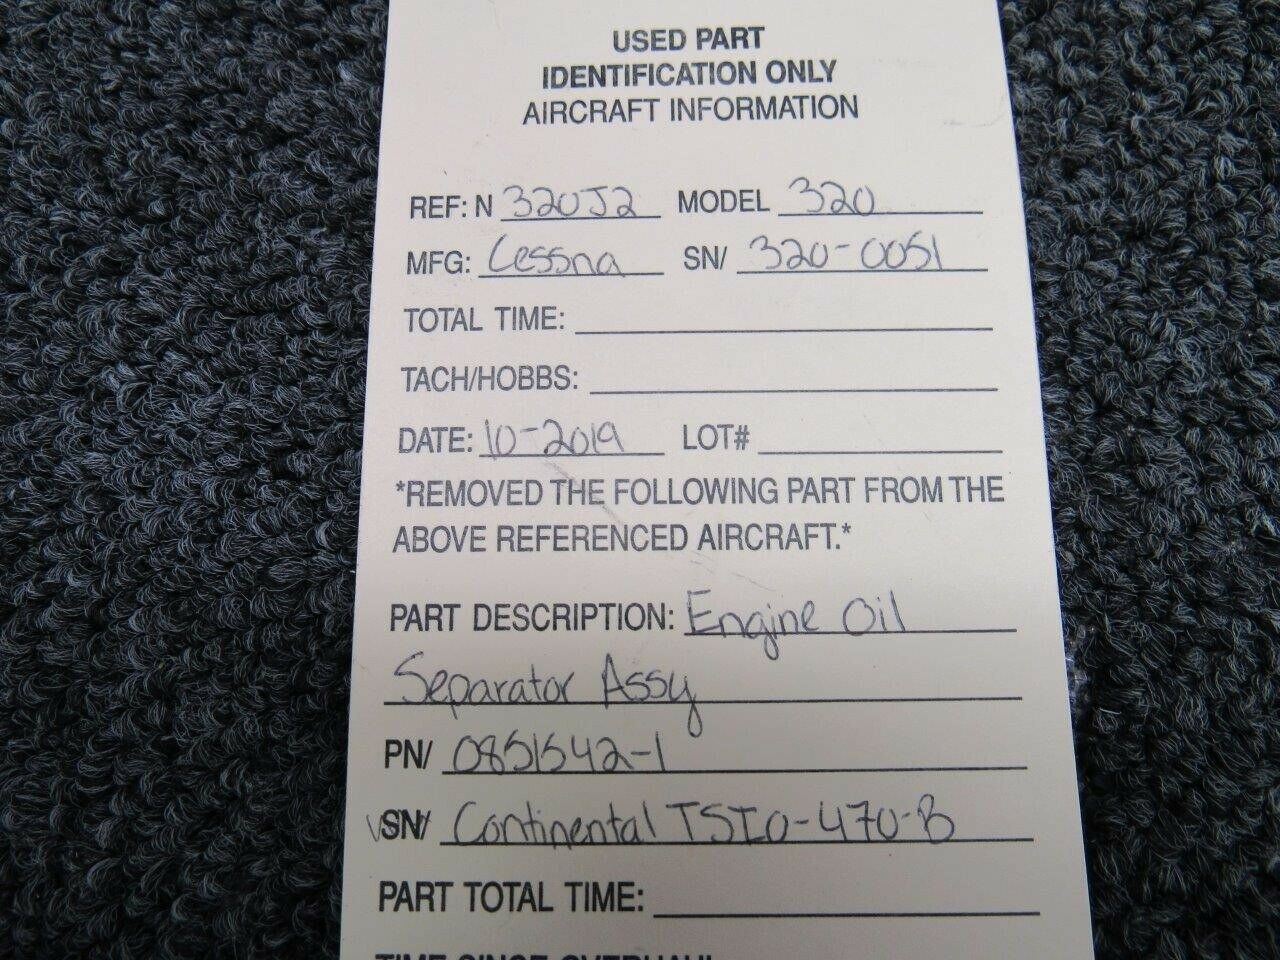 USED PART
IDENTIFICATION ONLY
AIRCRAFT INFORMATION
REF: N 320J2 MODEL 320
MFG: Cessna SN/ 320-0051
TOTAL TIME:
TACH/HOBBS:
DATE: 10-2019 LOT#
*REMOVED THE FOLLOWING PART FROM THE
ABOVE REFERENCED AIRCRAFT.*
PART DESCRIPTION: Engine Oil
Separator Assy
PN/ 0851542-1
SN/ Continental TSIO-470-B
PART TOTAL TIME:
TIME SINCE OVERHAUL